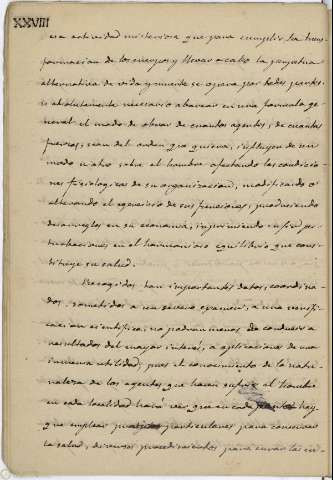 XXVIII
esa actividad misteriosa que para cumplir la trans-
formacion de los cuerpos y llevar a cabo la perpetua
alternativa de vida y muerte se opera por todas partes.
es absolutamente necesario abarcar en una formula ge-
neral el modo de obrar de cuantos agentes, de cuantas
fuerzas, sean del orden que quieran, influyen de un
modo u otro sobre el hombre afectando las condicio-
nes fisiologicas de su organizacion, modificando o
alterando el egercicio de sus funciones, produciendo
desarreglos en su economia, imprimiendo en fin per-
turbaciones en el harmonioso equilibrio que cons-
tituye su salud.
Recogidos tan importantes datos, coordina-
dos, sometidos a un severo examen, a una
cacion cientifica, no podran menos de conducir a
resultados del mayor interes, a aplicaciones de una
inmensa utilidad; pues el conocimiento de la natu-
raleza de los agentes que hacen sufrir al hombre
en cada localidad hará ver que en cada hay
que emplear particulares para conservar
la salud, diversos procedimientos para curar las en-